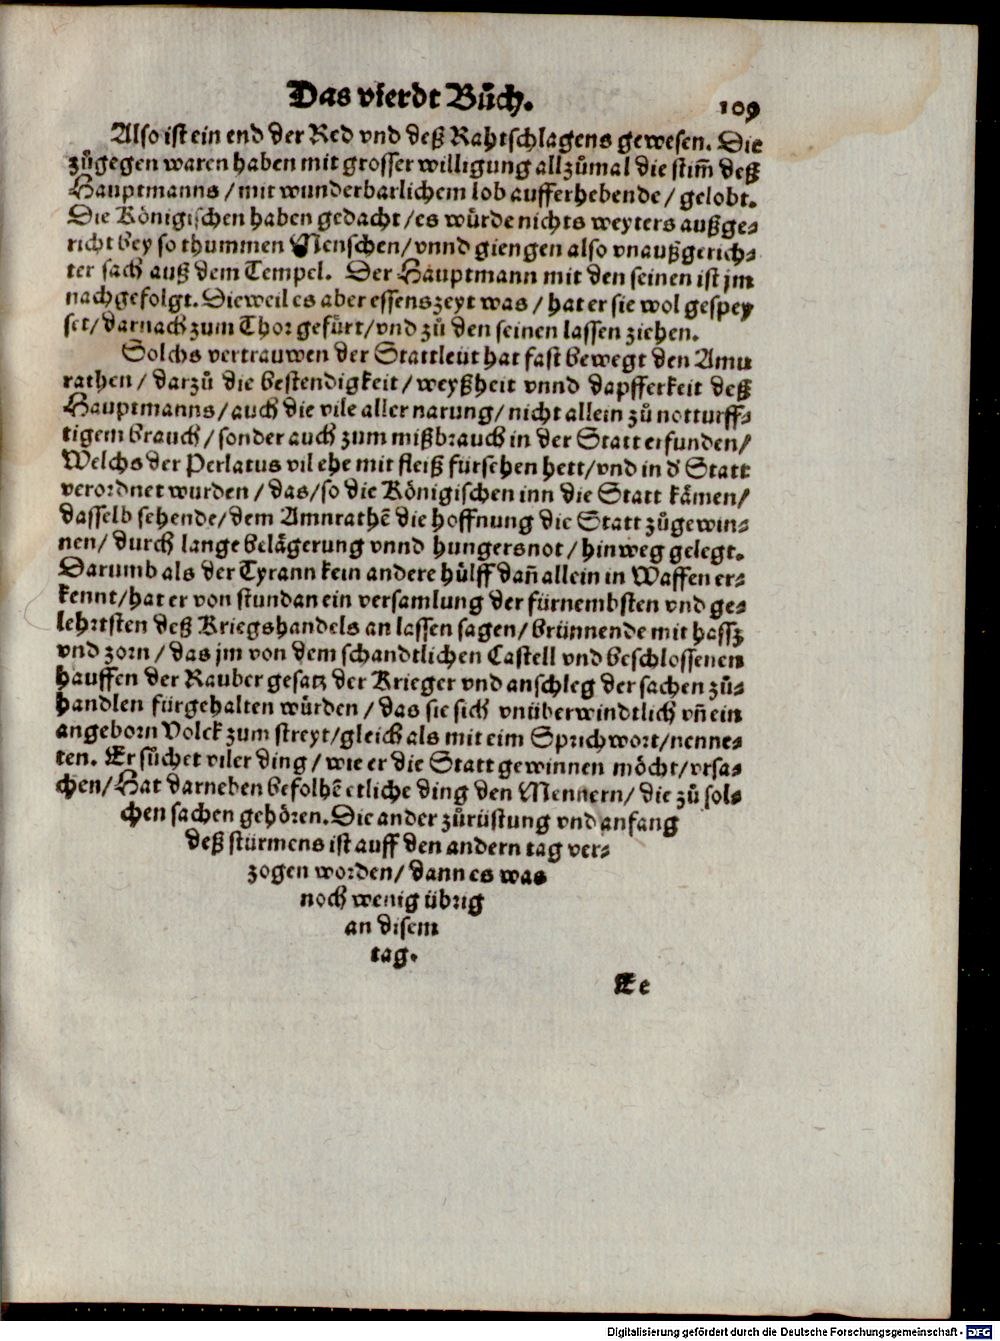 Das vierdt Bůch.
109
Also ist ein end der Red vnd deß Rahtschlagens gewesen. Die
zůgegen waren haben mit grosser willigung allzůmal die stim̃ deß
Hauptmanns / mit wunderbarlichem lob aufferhebende / gelobt.
Die Königischen haben gedacht / es würde nichts weyters außge-
richt bey so thummen Menschen / vnnd giengen also vnaußgerich-
ter sach auß dem Tempel. Der Hauptmann mit den seinen ist jm
nachgefolgt. Dieweil es aber essenszeyt was / hat er sie wol gespey
set / darnach zum Thor gefürt / vnd zů den seinen lassen ziehen.
Solchs vertrauwen der Stattleüt hat fast bewegt den Amu
rathen / darzů die bestendigkeit / weyßheit vnnd dapfferkeit deß
Hauptmanns / auch die vile aller narung / nicht allein zů notturff-
tigem brauch / sonder auch zum mißbrauch in der Statt erfunden /
Welchs der Perlatus vil ehe mit fleiß fürsehen hett / vnd in d' Statt
verordnet wurden / das / so die Königischen inn die Statt kämen /
dasselb sehende / dem Amnrathẽ die hoffnung die Statt zůgewin-
nen / durch lange belägerung vnnd hungersnot / hinweg gelegt.
Darumb als der Tyrann kein andere hülff dañ allein in Waffen er-
kennt / hat er von stundan ein versamlung der fürnembsten vnd ge-
lehrtsten deß Kriegshandels an lassen sagen / brünnende mit hassz
vnd zorn / das jm von dem schandtlichen Castell vnd beschlossenen
hauffen der Rauber gesatz der Krieger vnd anschleg der sachen zů-
handlen fürgehalten würden / das sie sich vnüberwindtlich vñ ein
angeborn Volck zum streyt / gleich als mit eim Sprichwort / nenne-
ten. Er sůchet viler ding / wie er die Statt gewinnen möcht / vrsa-
chen / Hat darneben befolhẽ etliche ding den Mennern / die zů sol-
chen sachen gehören. Die ander zůrüstung vnd anfang
deß stürmens ist auff den andern tag ver-
zogen worden / dann es was
noch wenig übrig
an disem
tag.
Ee
Digitalisierung gefördert durch die Deutsche Forschungsgemeinschaft - DFG